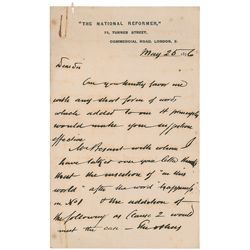 "THE NATIONAL REFORMER,"
TURNER STREET,
COMMERCIAL ROAD, LONDON, E.
May 25
Dear Sir
Can you kindly favor me
with any short form of words
which added to one it
would make your
effective
Mr Besant with whom I
have talked over your letter thinks
that the insertion of "in this
world" after the word happiness
in No 1 & the addition of
the following as clause 2 would
meet the case – the others